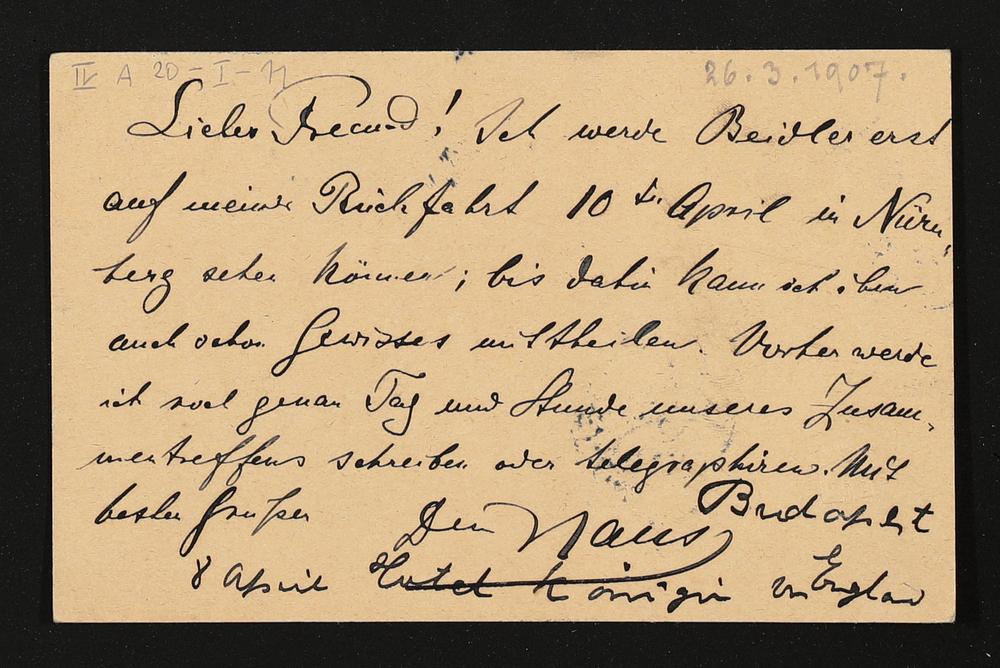 IV A 20-I-11
26.3.1907.
Lieber Freund! Ich werde Beidler erst
auf meiner Rückfahrt 10 t. April in Nürn-
berg sehen können; bis dahin kann ich eben
auch schon Gewisses mittheilen. Vorher werde
ich noch genau Tag und Stunde unseres Zusam-
mentreffens schreiben oder telegraphiren. Mit
besten Grüßen Dein Hans
Budapest
8 April Hotel Königin von England